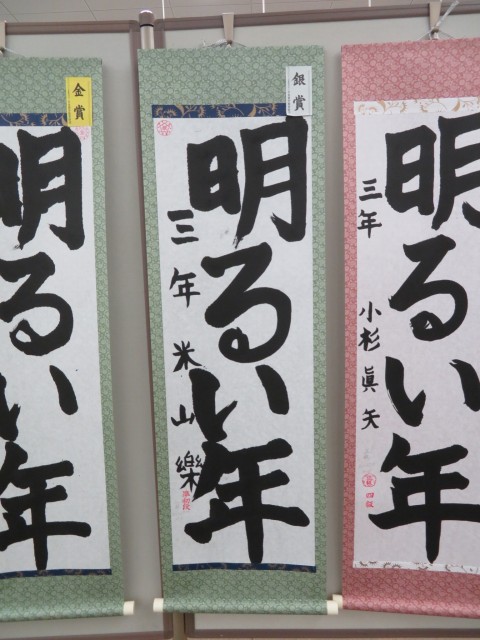 金賞
明るい年
銀賞
明るい年
三年 米山樂
明るい年
三年 小杉眞矢
四級